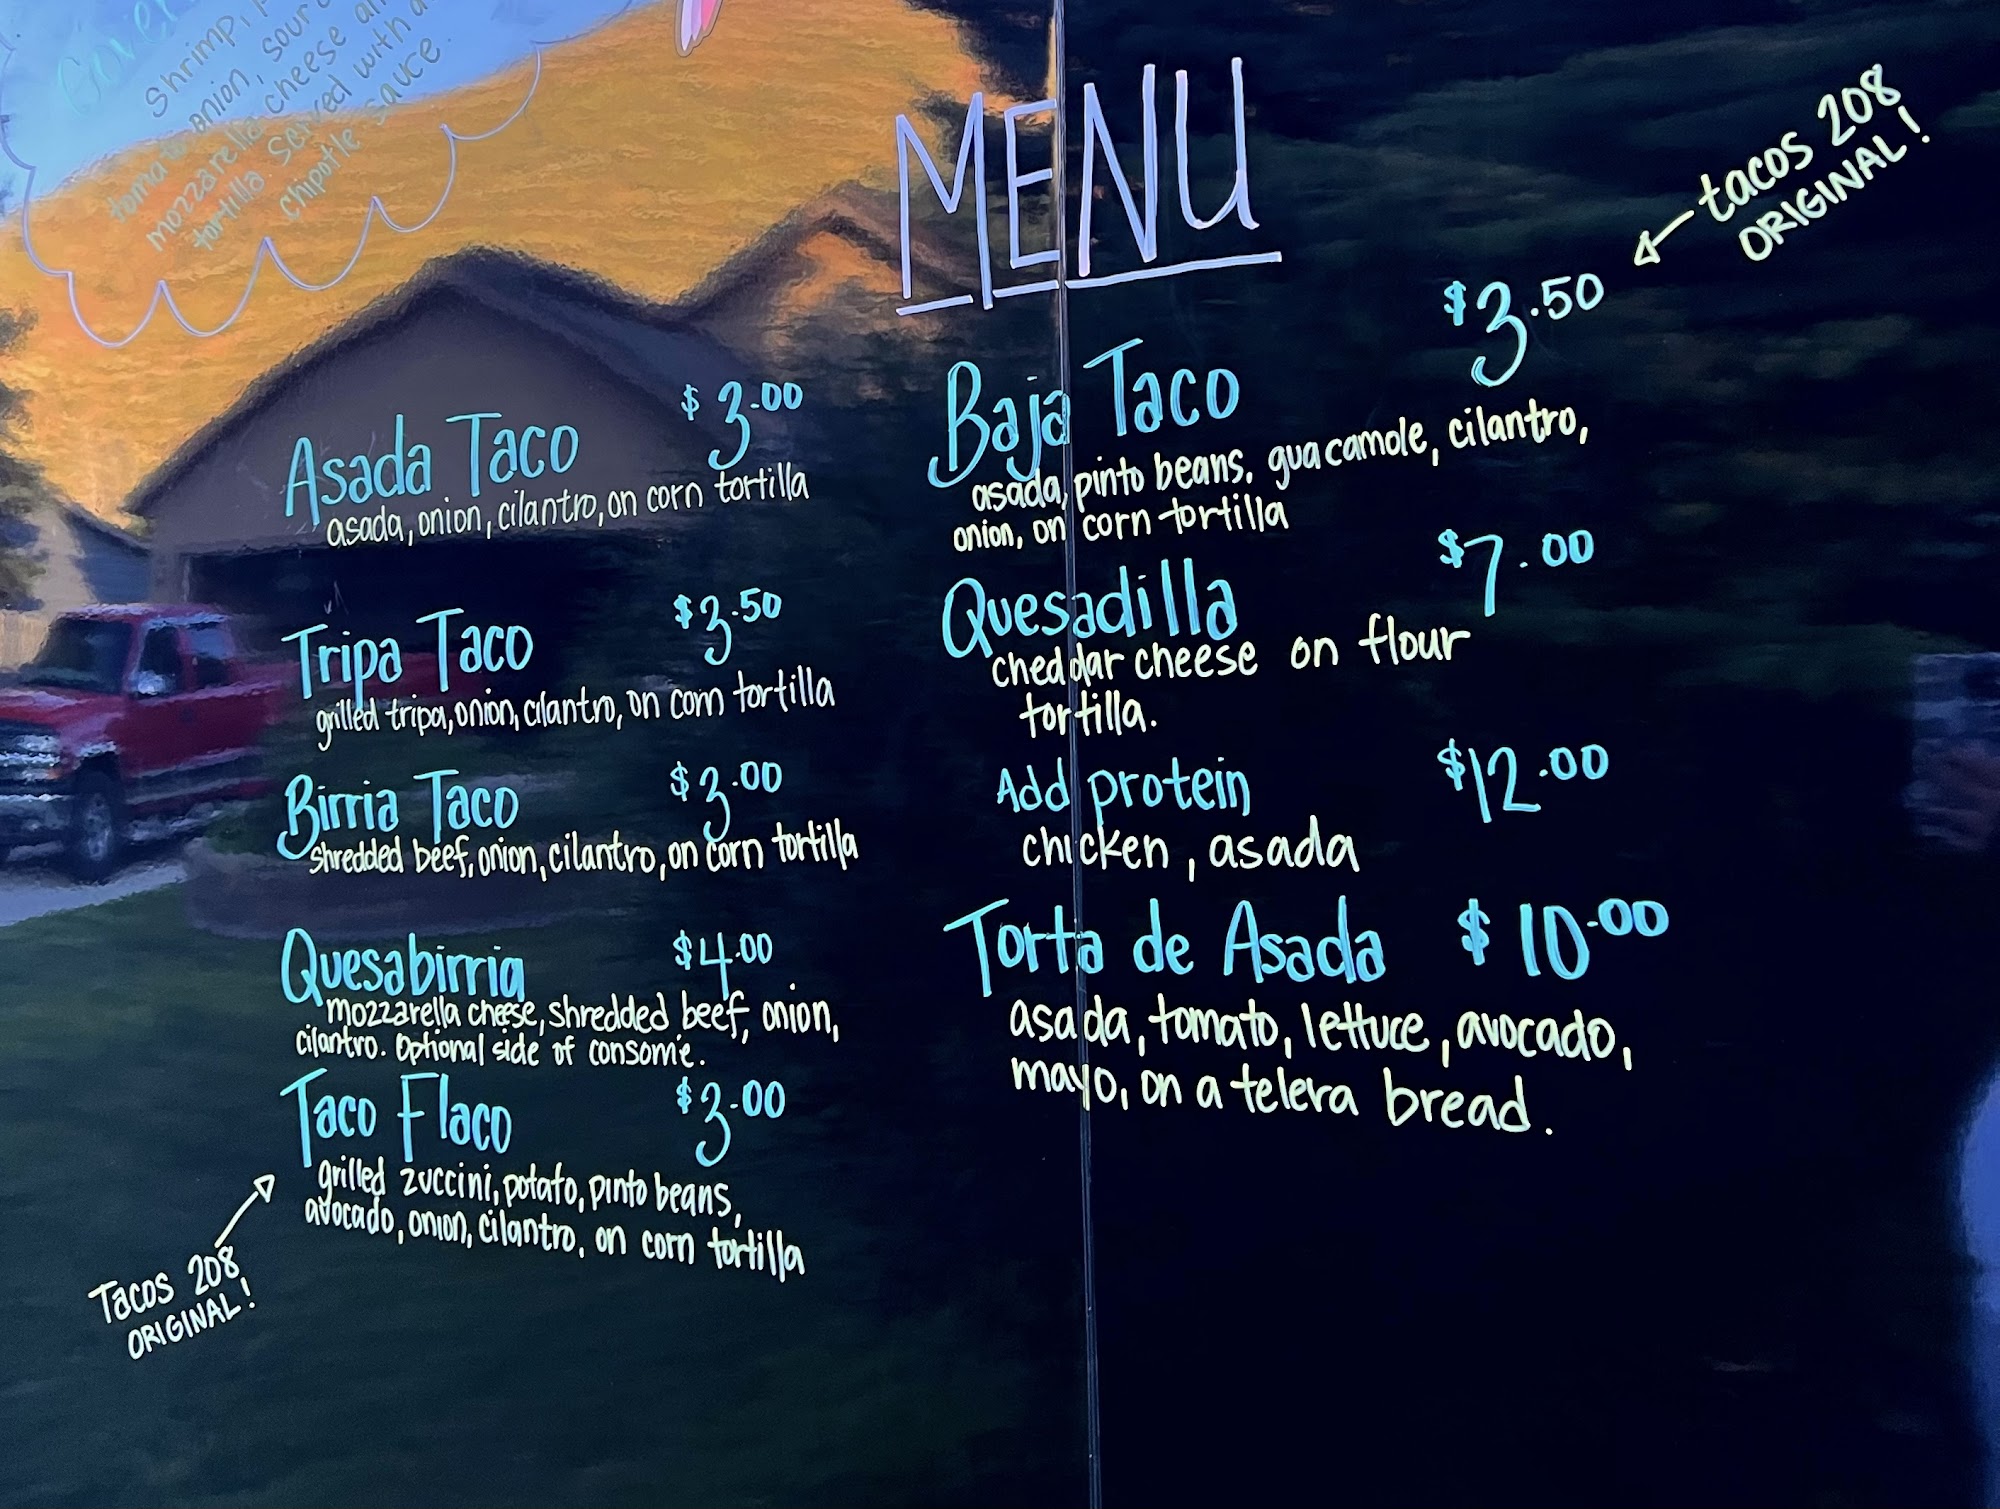 Shrimp,
onion, sour
mozzarella cheese
tortilla. Served with
chipotle sauce.
MENU
Asada Taco $3.00
asada, onion, cilantro, on corn tortilla
Tripa Taco $3.50
grilled tripa, onion, cilantro, on corn tortilla
Birria Taco $3.00
shredded beef, onion, cilantro, on corn tortilla
Quesabirria $4.00
mozzarella cheese, shredded beef, onion,
cilantro. Optional side of consomé.
Taco Flaco $3.00
grilled zuccini, potato, pinto beans,
avocado, onion, cilantro, on corn tortilla
Tacos 208
ORIGINAL!
tacos 208
ORIGINAL!
Baja Taco $3.50
asada, pinto beans, guacamole, cilantro,
onion, on corn tortilla
Quesadilla $7.00
cheddar cheese on flour
tortilla.
Add protein $12.00
chicken, asada
Torta de Asada $10.00
asada, tomato, lettuce, avocado,
mayo, on a telera bread.